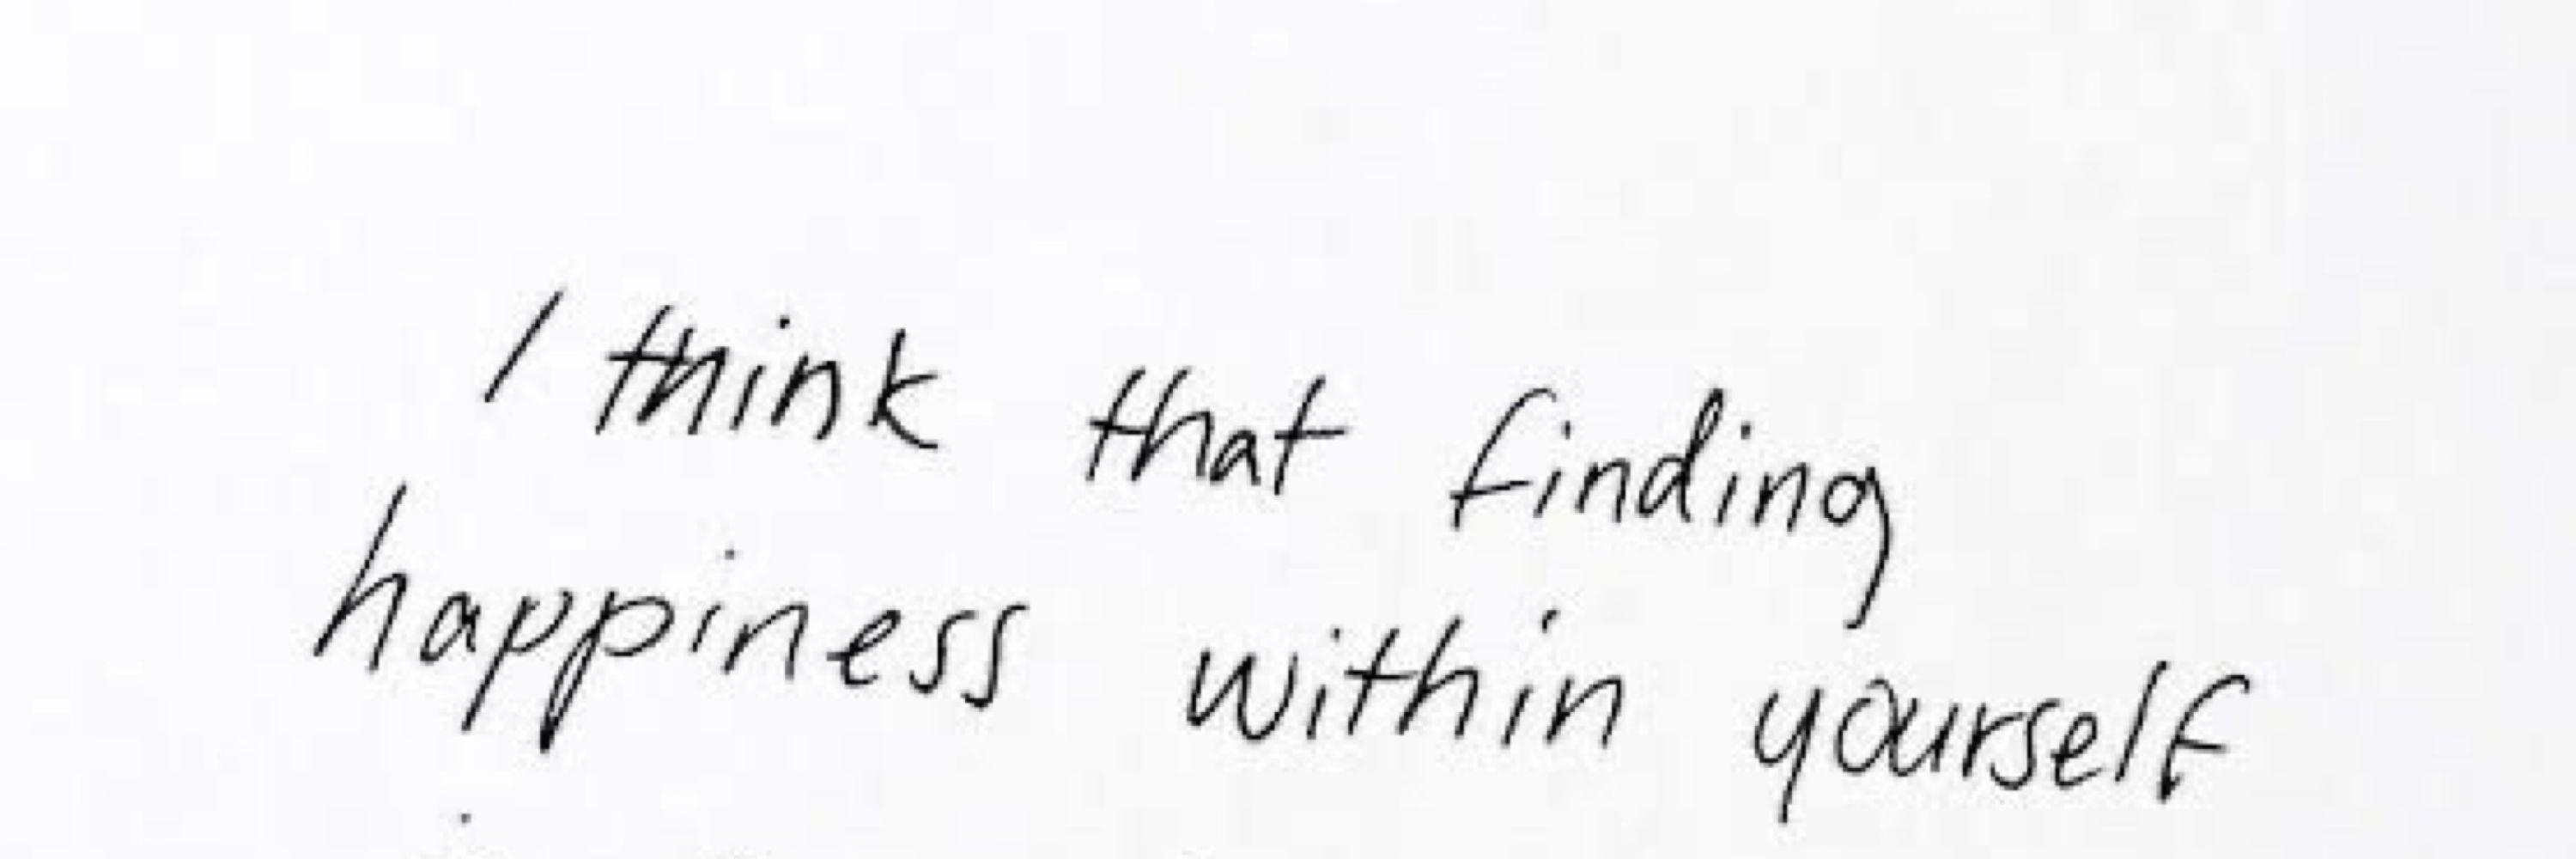 I think that finding
happiness within yourself